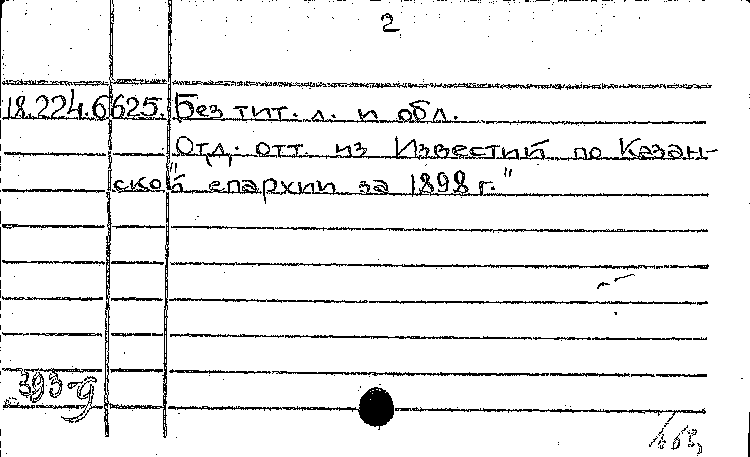 2
18.224.6625. Без тит. л. и обл.
Отд. отт. из "Известий по Казан-
ской епархии за 1898 г."
393-д